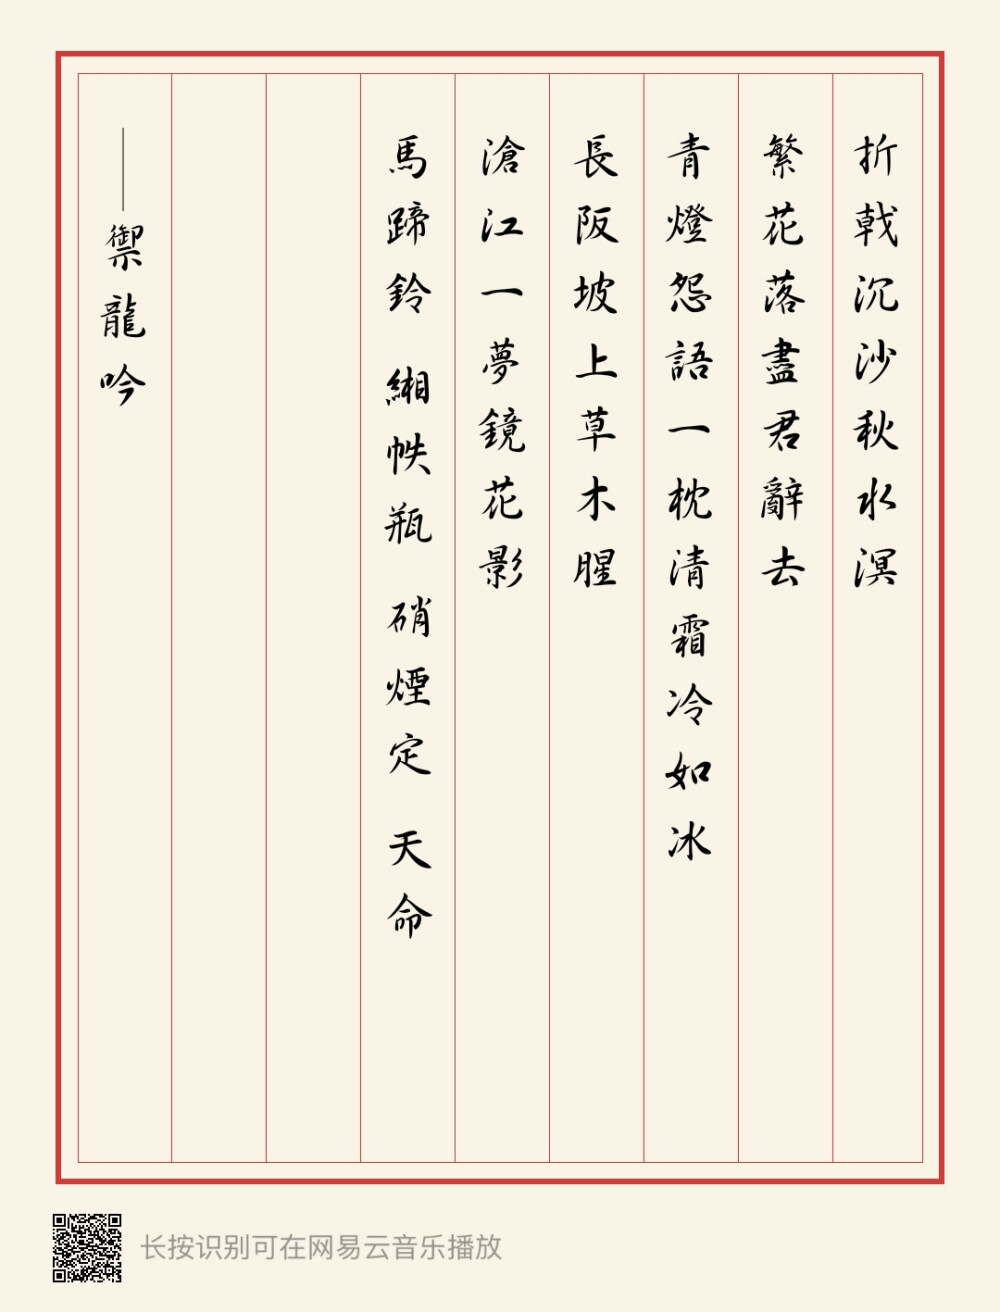 折戟沉沙秋水溟
繁花落盡君辭去
青燈怨語一枕清霜冷如冰
長阪坡上草木腥
滄江一夢鏡花影
馬蹄鈴 緗帙瓶 硝煙定 天命
——禦龍吟
长按识别可在网易云音乐播放